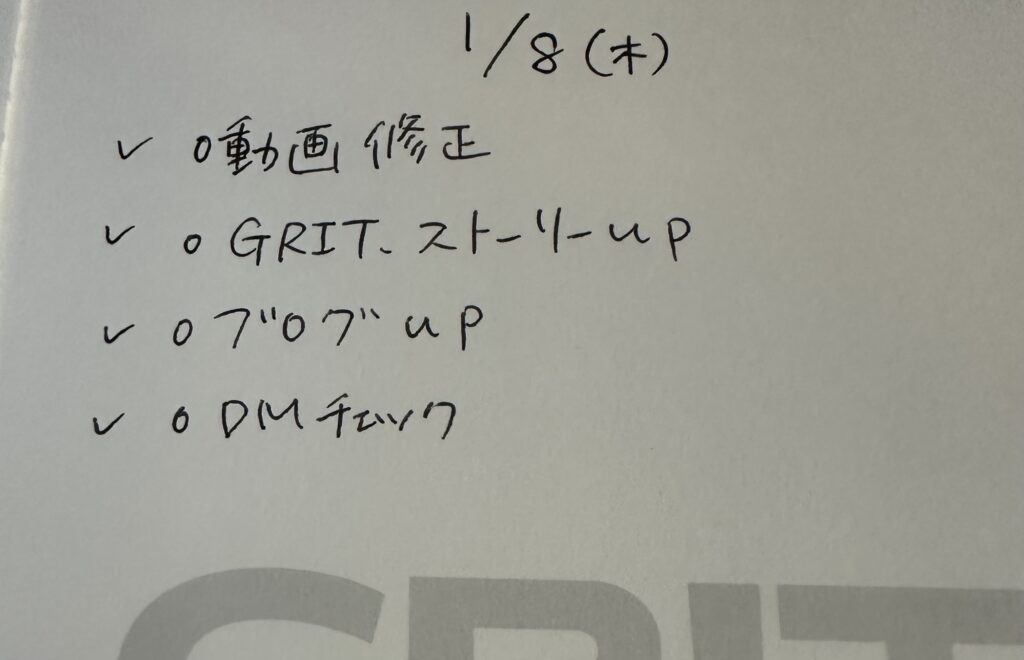 1/8(木)
✓ ○動画修正
✓ ○GRIT、ストーリーup
✓ ○ブログup
✓ ○DMチェック
GRIT